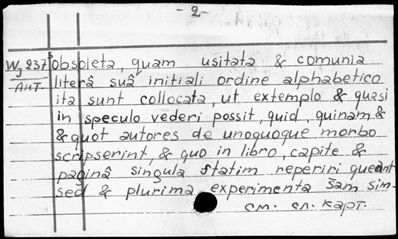 - 2 -
Wj 237⁵ obsoleta, quam usitata & comunia
Ант. literâ suâ initiali ordine alphabetico
ita sunt collocata, ut extemplo & quasi
in speculo vederi possit, quid, quinam &
& quot autores de unoquoque morbo
scripserint, & quo in libro, capite &
paginâ singula statim reperiri queant
sed & plurima experimenta šam sim-
см. сл. карт.